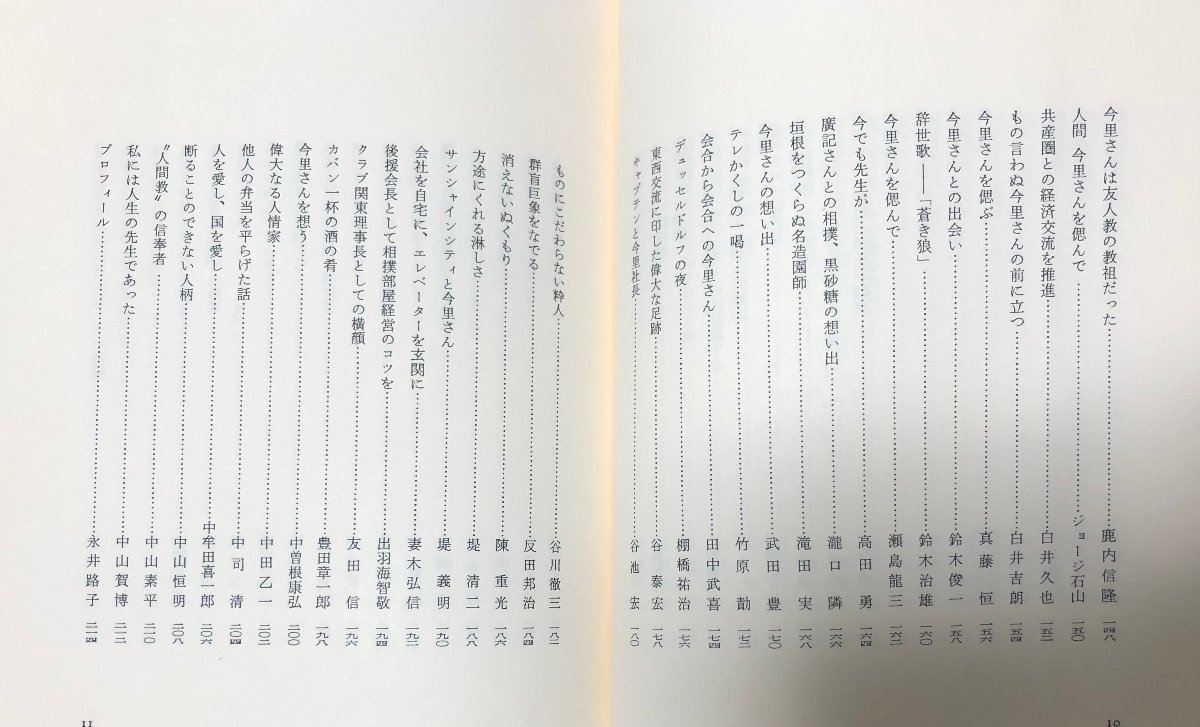 今里さんは友人教の教祖だった……鹿内信隆 一四八
人間 今里さんを偲んで……ジョージ石山 一五〇
共産圏との経済交流を推進……白井久也 一五二
もの言わぬ今里さんの前に立つ……白井吉朗 一五四
今里さんを偲ぶ……真藤恒 一五六
今里さんとの出会い……鈴木俊一 一五八
辞世歌――「蒼き狼」……鈴木治雄 一六〇
今里さんを偲んで……瀬島龍三 一六二
今でも先生が……高田勇 一六四
廣記さんとの相撲、黒砂糖の想い出……瀧口隣 一六六
垣根をつくらぬ名造園師……滝田実 一六八
今里さんの想い出……武田豊
テレかくしの一喝……竹原勣 一七二
会合から会合への今里さん……田中武喜 一七四
デュッセルドルフの夜……棚橋祐治 一七六
東西交流に印した偉大な足跡……谷泰宏 一七八
キャプテンと今里社長……谷池宏 一八〇
10
ものにこだわらない粋人……谷川徹三 一八二
群盲巨象をなでる……反田邦治 一八四
消えないぬくもり……陳重光 一八六
方途にくれる淋しさ……堤清二 一八八
サンシャインシティと今里さん……堤義明 一九〇
会社を自宅に、エレベーターを玄関に……妻木弘信 一九二
後援会長として相撲部屋経営のコツを……出羽海智敬 一九四
クラブ関東理事長としての横顔……友田信 一九六
カバン一杯の酒の肴……豊田章一郎 一九八
今里さんを想う……中曽根康弘 二〇〇
偉大なる人情家……中田乙一 二〇二
他人の弁当を平らげた話……中司清 二〇四
人を愛し、国を愛し……中牟田喜一郎 二〇六
断ることのできない人柄……中山恒明 二〇八
〝人間教〟の信奉者……中山素平 二一〇
私には人生の先生であった……中山賀博 二一二
プロフィール……永井路子 二一四
11